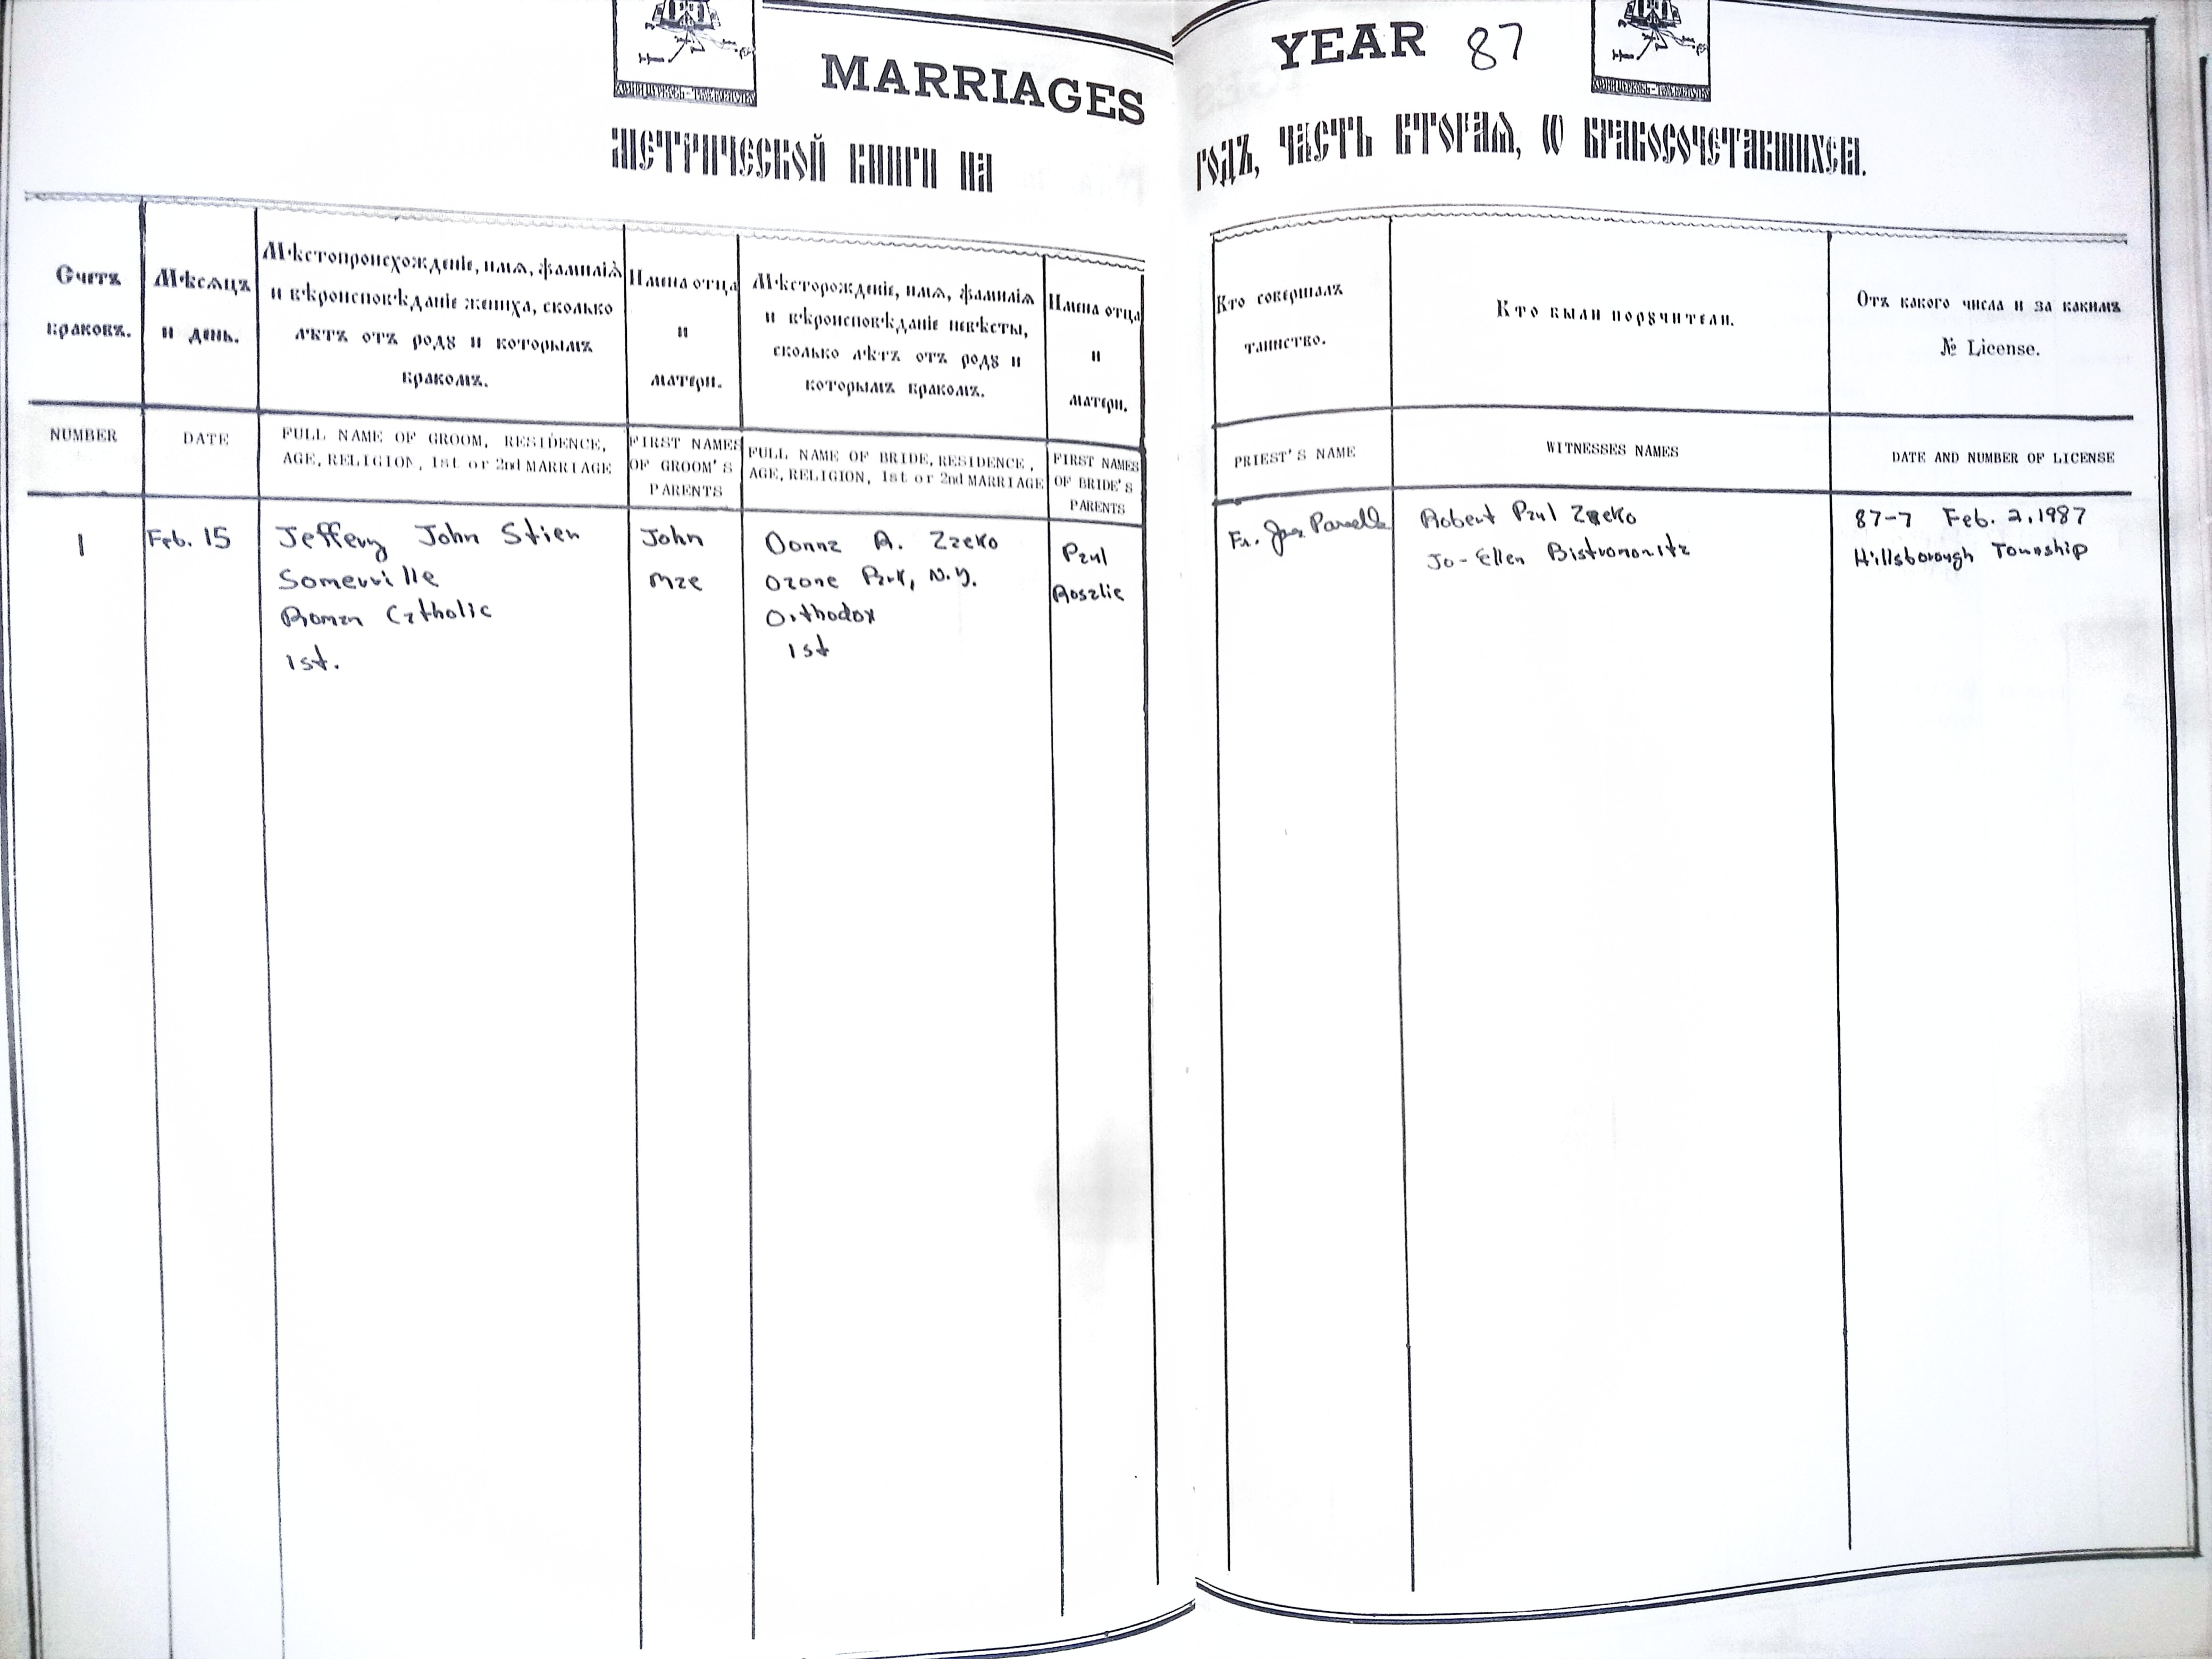 MARRIAGES
YEAR 87
МЕТРИЧЕСКОЙ КНИГИ НА
ГОДЪ, ЧАСТЬ ВТОРАѦ, Ѡ БРАКОСОЧЕТАВШИХСѦ.
Счетъ
браковъ.
Мѣсѧцъ
и день.
Мѣстопроисхожденіе, имѧ, фамиліѧ
и вѣроисповѣданіе жениха, сколько
лѣтъ отъ родꙋ и которымъ
бракомъ.
Имена отца
и
матери.
Мѣсторожденіе, имѧ, фамиліѧ
и вѣроисповѣданіе невѣсты,
сколько лѣтъ отъ родꙋ и
которымъ бракомъ.
Имена отца
и
матери.
Кто совершалъ
таинство.
Кто были порꙋчители.
Отъ какого числа и за какимъ
№ License.
NUMBER
DATE
FULL NAME OF GROOM, RESIDENCE,
AGE, RELIGION, 1st or 2nd MARRIAGE
FIRST NAMES
OF GROOM'S
PARENTS
FULL NAME OF BRIDE, RESIDENCE,
AGE, RELIGION, 1st or 2nd MARRIAGE
FIRST NAMES
OF BRIDE'S
PARENTS
PRIEST'S NAME
WITNESSES NAMES
DATE AND NUMBER OF LICENSE
1
Feb. 15
Jeffery John Stien
Somerville
Roman Catholic
1st.
John
Mae
Donna A. Zaeko
Ozone Park, N.Y.
Orthodox
1st
Paul
Rosalie
Fr.
Robert Paul Zaeko
Jo-Ellen
87-7 Feb. 2, 1987
Hillsborough Township